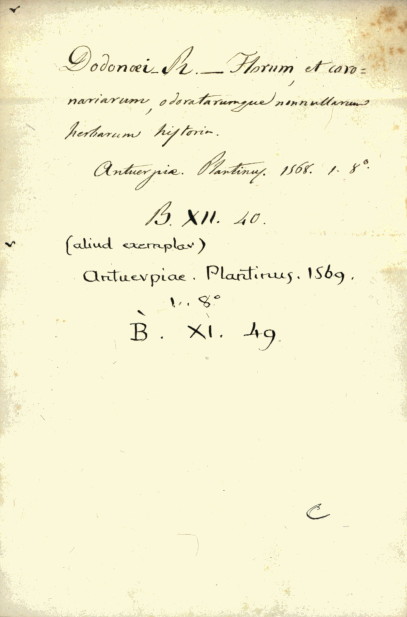 Dodonæi R. — Florum, et coro=
nariarum, odoratarumque nonnullarum
herbarum historia.
Antuerpiæ. Plantinus. 1568. 1. 8°.
B. XII. 40.
(aliud exemplar)
Antuerpiae. Plantinus. 1569.
1.. 8°
B. XI. 49
C